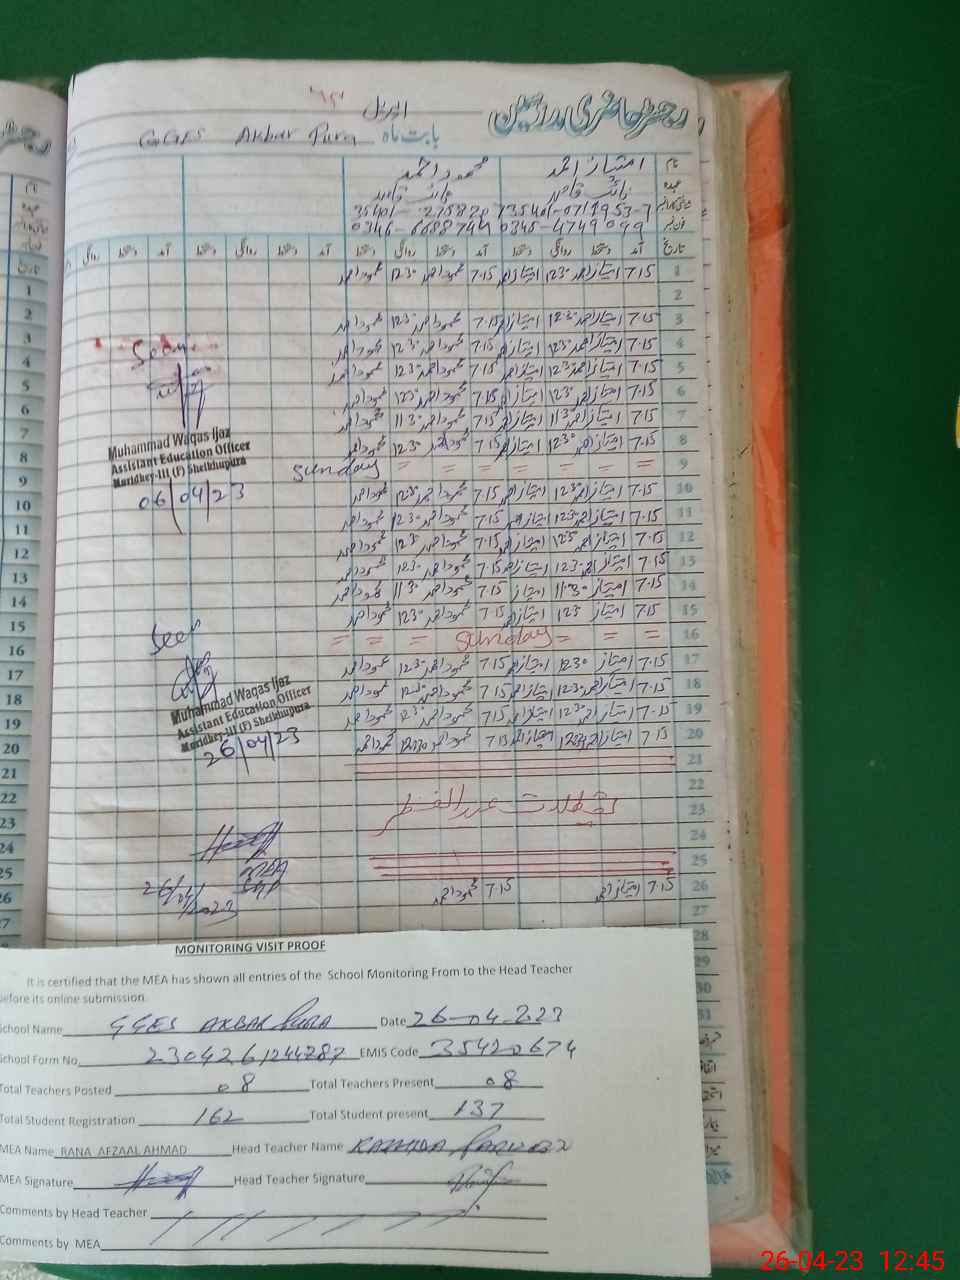 رجسٹر حاضری مدرسین
اپریل
بابت ماہ
GGES Akbar Pura
امتیاز احمد محمود احمد
نائب قاصد
0346-6688744 0345-4749099
تاریخ آمد دستخط روانگی دستخط آمد دستخط روانگی دستخط آمد دستخط روانگی دستخط
1 7.15 امتیاز احمد 1230 امتیاز احمد 7.15 محمود احمد 1230 محمود احمد
2
3 7.15 امتیاز احمد 1230 امتیاز احمد 7.15 محمود احمد 1230 محمود احمد
4 7.15 امتیاز احمد 1230 امتیاز احمد 7.15 محمود احمد 1230 محمود احمد
5 7.15 امتیاز احمد 1230 امتیاز احمد 7.15 محمود احمد 1230 محمود احمد
6 7.15 امتیاز احمد 1230 امتیاز احمد 7.15 محمود احمد 1230 محمود احمد
7 7.15 امتیاز احمد 1130 امتیاز احمد 7.15 محمود احمد 1130 محمود احمد
8 7.15 امتیاز احمد 1230 امتیاز احمد 7.15 محمود احمد 1230 محمود احمد
9 = = = = = = = Sunday
10 7.15 امتیاز احمد 1230 امتیاز احمد 7.15 محمود احمد 1230 محمود احمد
11 7.15 امتیاز احمد 1230 امتیاز احمد 7.15 محمود احمد 1230 محمود احمد
12 7.15 امتیاز احمد 1230 امتیاز احمد 7.15 محمود احمد 1230 محمود احمد
13 7.15 امتیاز 1230 امتیاز احمد 7.15 محمود احمد 1230 محمود احمد
14 7.15 امتیاز 1130 امتیاز 7.15 محمود احمد 1130 محمود احمد
15 7.15 امتیاز 1230 امتیاز احمد 7.15 محمود احمد 1230 محمود احمد
16 = = = Sunday = = =
17 7.15 امتیاز 1230 امتیاز احمد 7.15 محمود احمد 1230 محمود احمد
18 7.15 امتیاز احمد 1230 امتیاز احمد 7.15 محمود احمد 1230 محمود احمد
19 7.15 امتیاز احمد 1230 امتیاز احمد 7.15 محمود احمد 1230 محمود احمد
20 7.15 امتیاز احمد 1230 امتیاز احمد 7.15 محمود احمد 1230 محمود احمد
21
22
23 تعطیلات عید الفطر
24
25
26 7.15 امتیاز احمد 7.15 محمود احمد
27
28
29
30
31
Seen
Muhammad Waqas Ijaz
Assistant Education Officer
Muridkey-III (F) Sheikhupura
06/04/23
Seen
Muhammad Waqas Ijaz
Assistant Education Officer
Muridkey-III (F) Sheikhupura
26/04/23
MEA
26/04/2023
MONITORING VISIT PROOF
It is certified that the MEA has shown all entries of the School Monitoring From to the Head Teacher
before its online submission.
School Name GGES AKBAR PURA Date 26-04-2023
School Form No. 2304261244787 EMIS Code 35420674
Total Teachers Posted 08 Total Teachers Present 08
Total Student Registration 162 Total Student present 137
MEA Name RANA AFZAAL AHMAD Head Teacher Name
MEA Signature Head Teacher Signature
Comments by Head Teacher
Comments by MEA
26-04-23 12:45